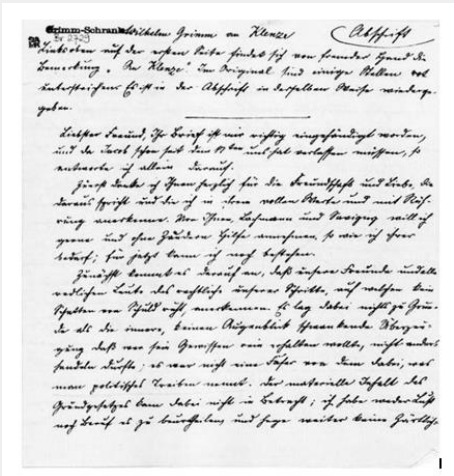 Grimm-Schrank Wilhelm Grimm an Klenze (Abschrift)
Br 2729
Links oben auf der ersten Seite findet sich von fremder Hand die
Bemerkung „An Klenze“. Im Original sind einige Stellen rot
unterstrichen. Es ist in der Abschrift in derselben Weise wiederge-
geben.
Liebster Freund, Ihr Brief ist mir richtig eingehändigt worden,
und da Jacob schon seit dem 17ten uns hat verlassen müssen, so
antworte ich allein darauf.
Zuerst danke ich Ihnen herzlich für die Freundschaft und Liebe, die
daraus spricht und die ich in ihrem vollen Werte und mit Rüh-
rung anerkenne. Von Ihnen, Lachmann und Savigny will ich
gerne und ohne Zaudern Hilfe annehmen, so wie ich ihrer
bedarf; für jetzt kann ich noch bestehen.
Zunächst kommt es darauf an, daß unsere Freunde und alle
redlichen Leute das rechtliche unserer Schritte, auf welchen kein
Schatten von Schuld ruht, anerkennen. Es lag dabei nichts zu Grun-
de als die innere, keinen Augenblick schwankende Überzeu-
gung daß wer sein Gewissen rein erhalten wollte, nicht anders
handeln durfte; es war nicht eine Faser von dem dabei, was
man politisches Treiben nennt. Der materielle Inhalt des
Grundgesetzes kam dabei nicht in Betracht; ich habe weder Lust
noch Beruf es zu beurtheilen und hege weiter keine Zärtlich-